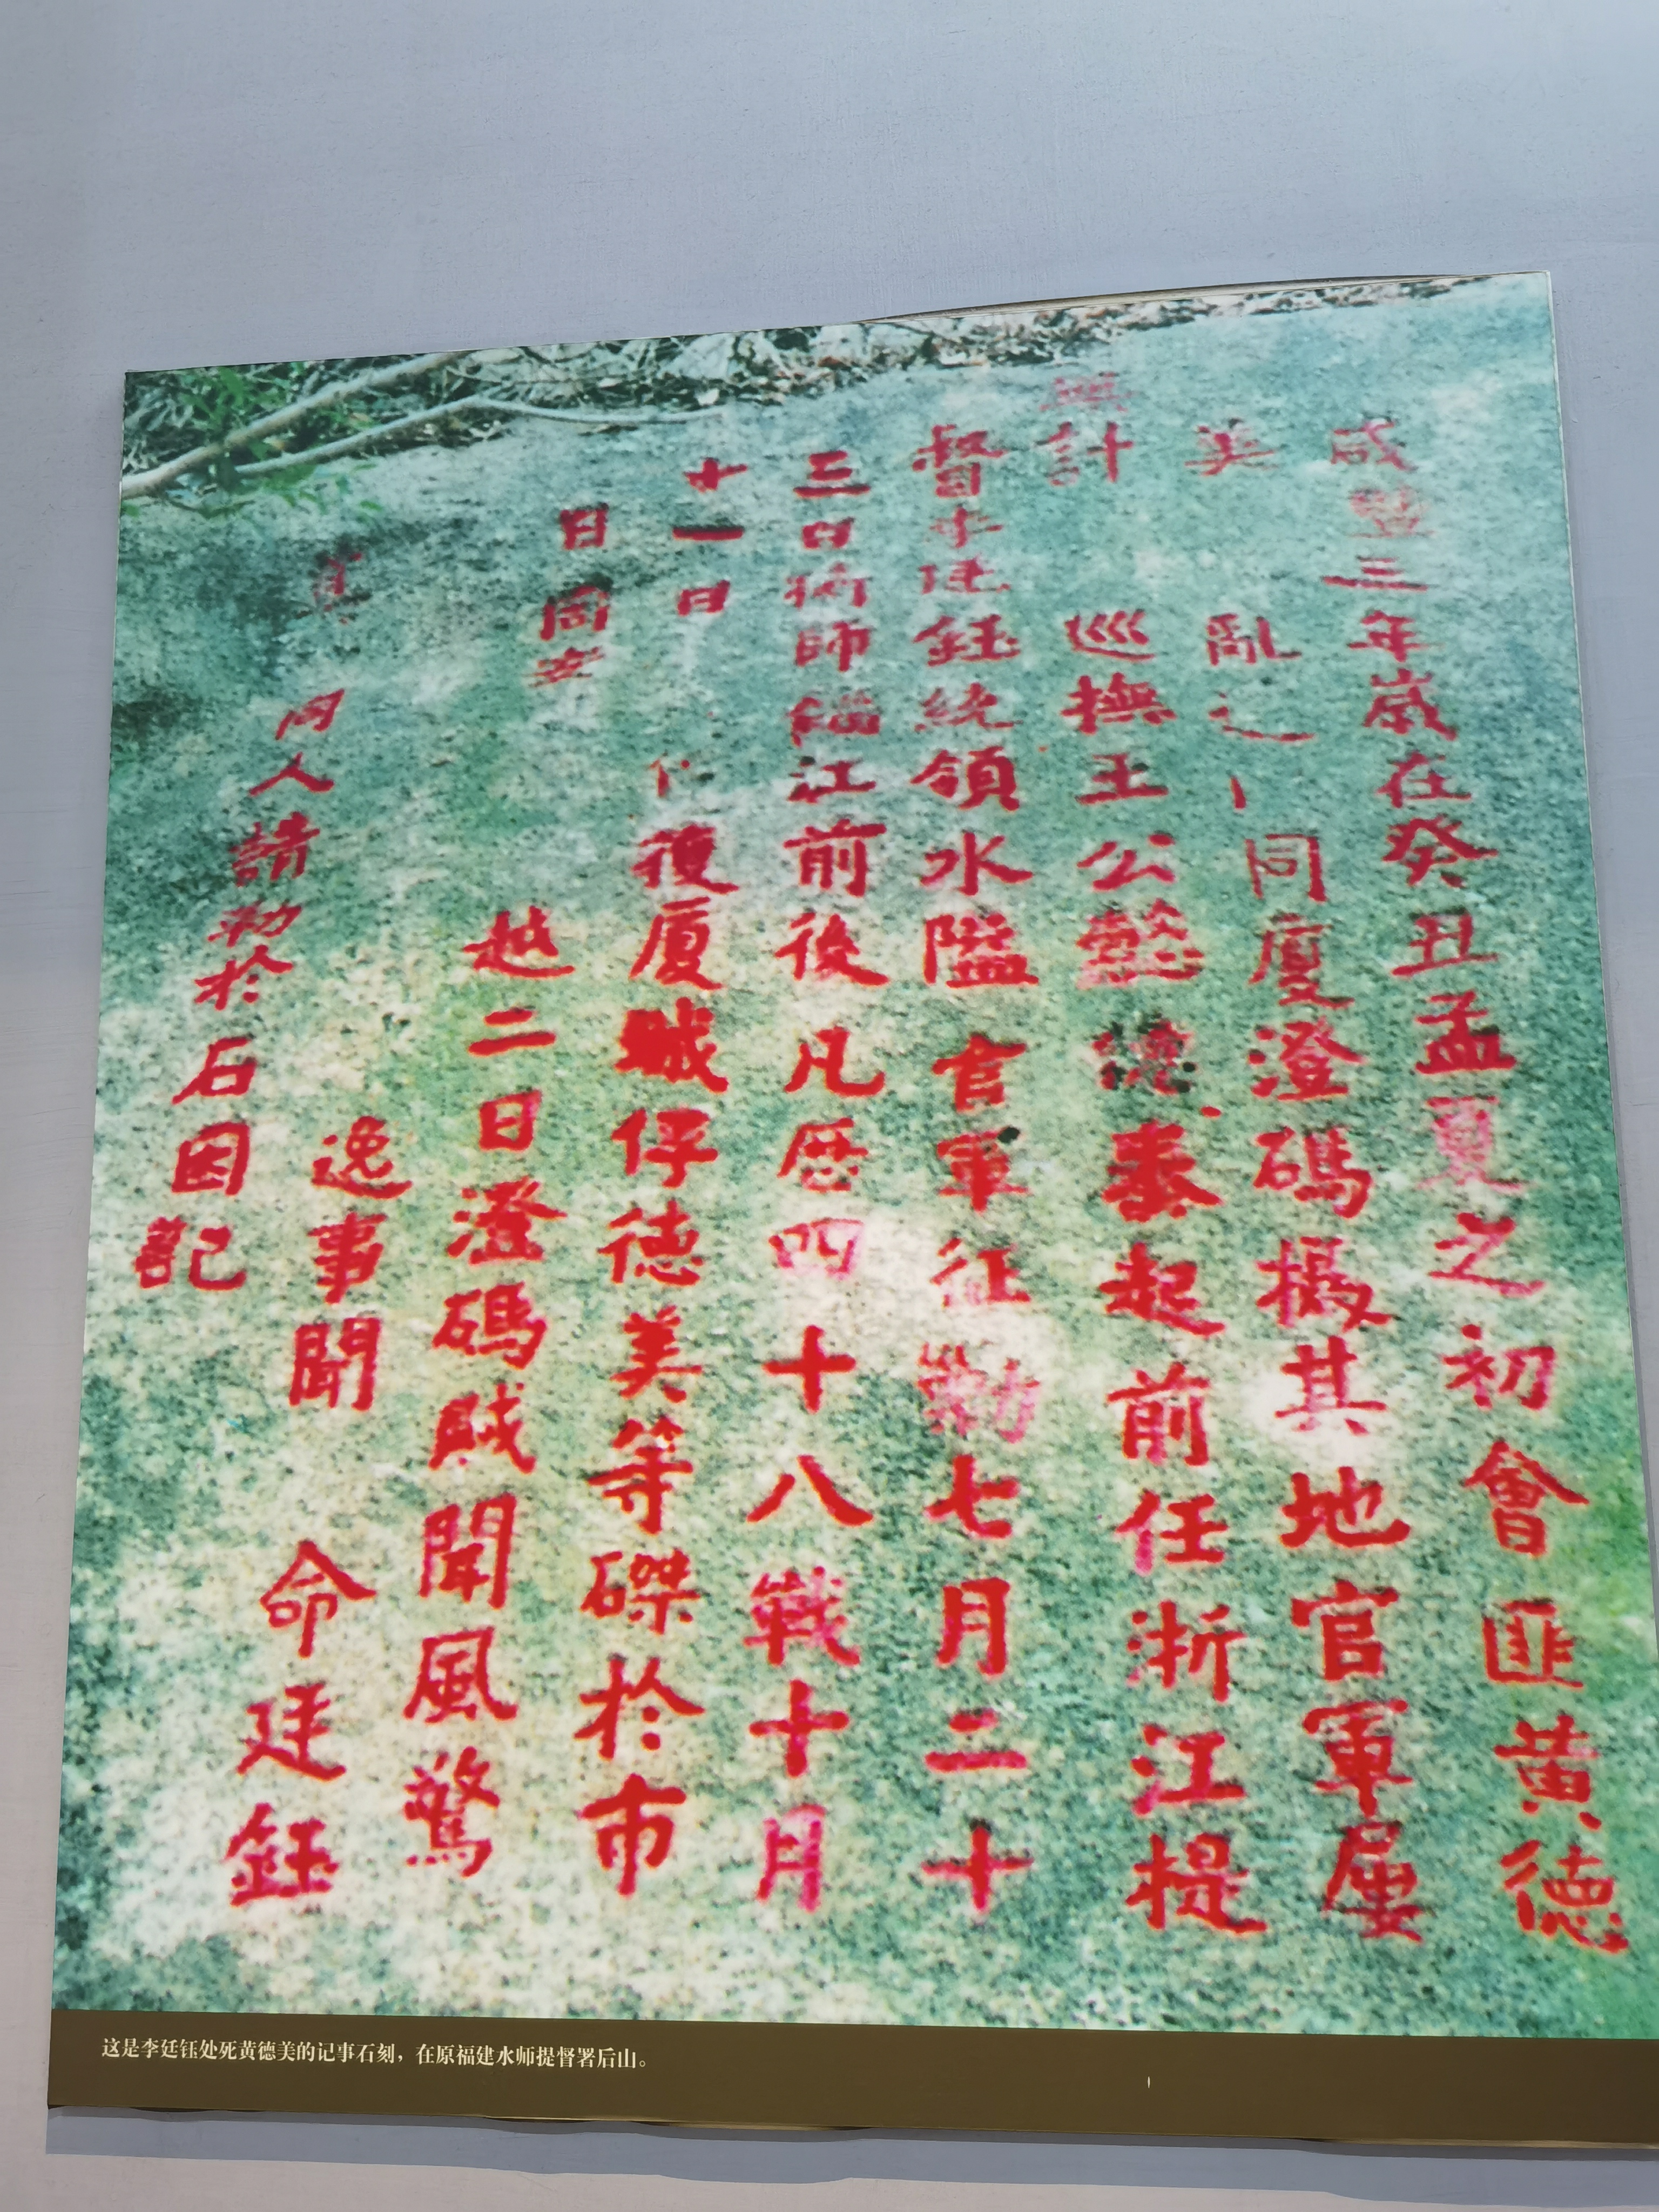 咸豐三年歲在癸丑孟夏之初會匪黃德
美 亂 同廈澄碼擾其地官軍屢
計 巡撫王公懿德奏起前任浙江提
督李廷鈺統領水 官軍征勦七月二十
三日 師 江前後凡歷四十八戰十月
十一日 復廈賊仔德美等磔於市
日 同安 越二日澄碼賊聞風驚
逸事聞 命廷鈺
同人請勒於石因記
这是李廷钰处死黄德美的记事石刻，在原福建水师提督署后山。